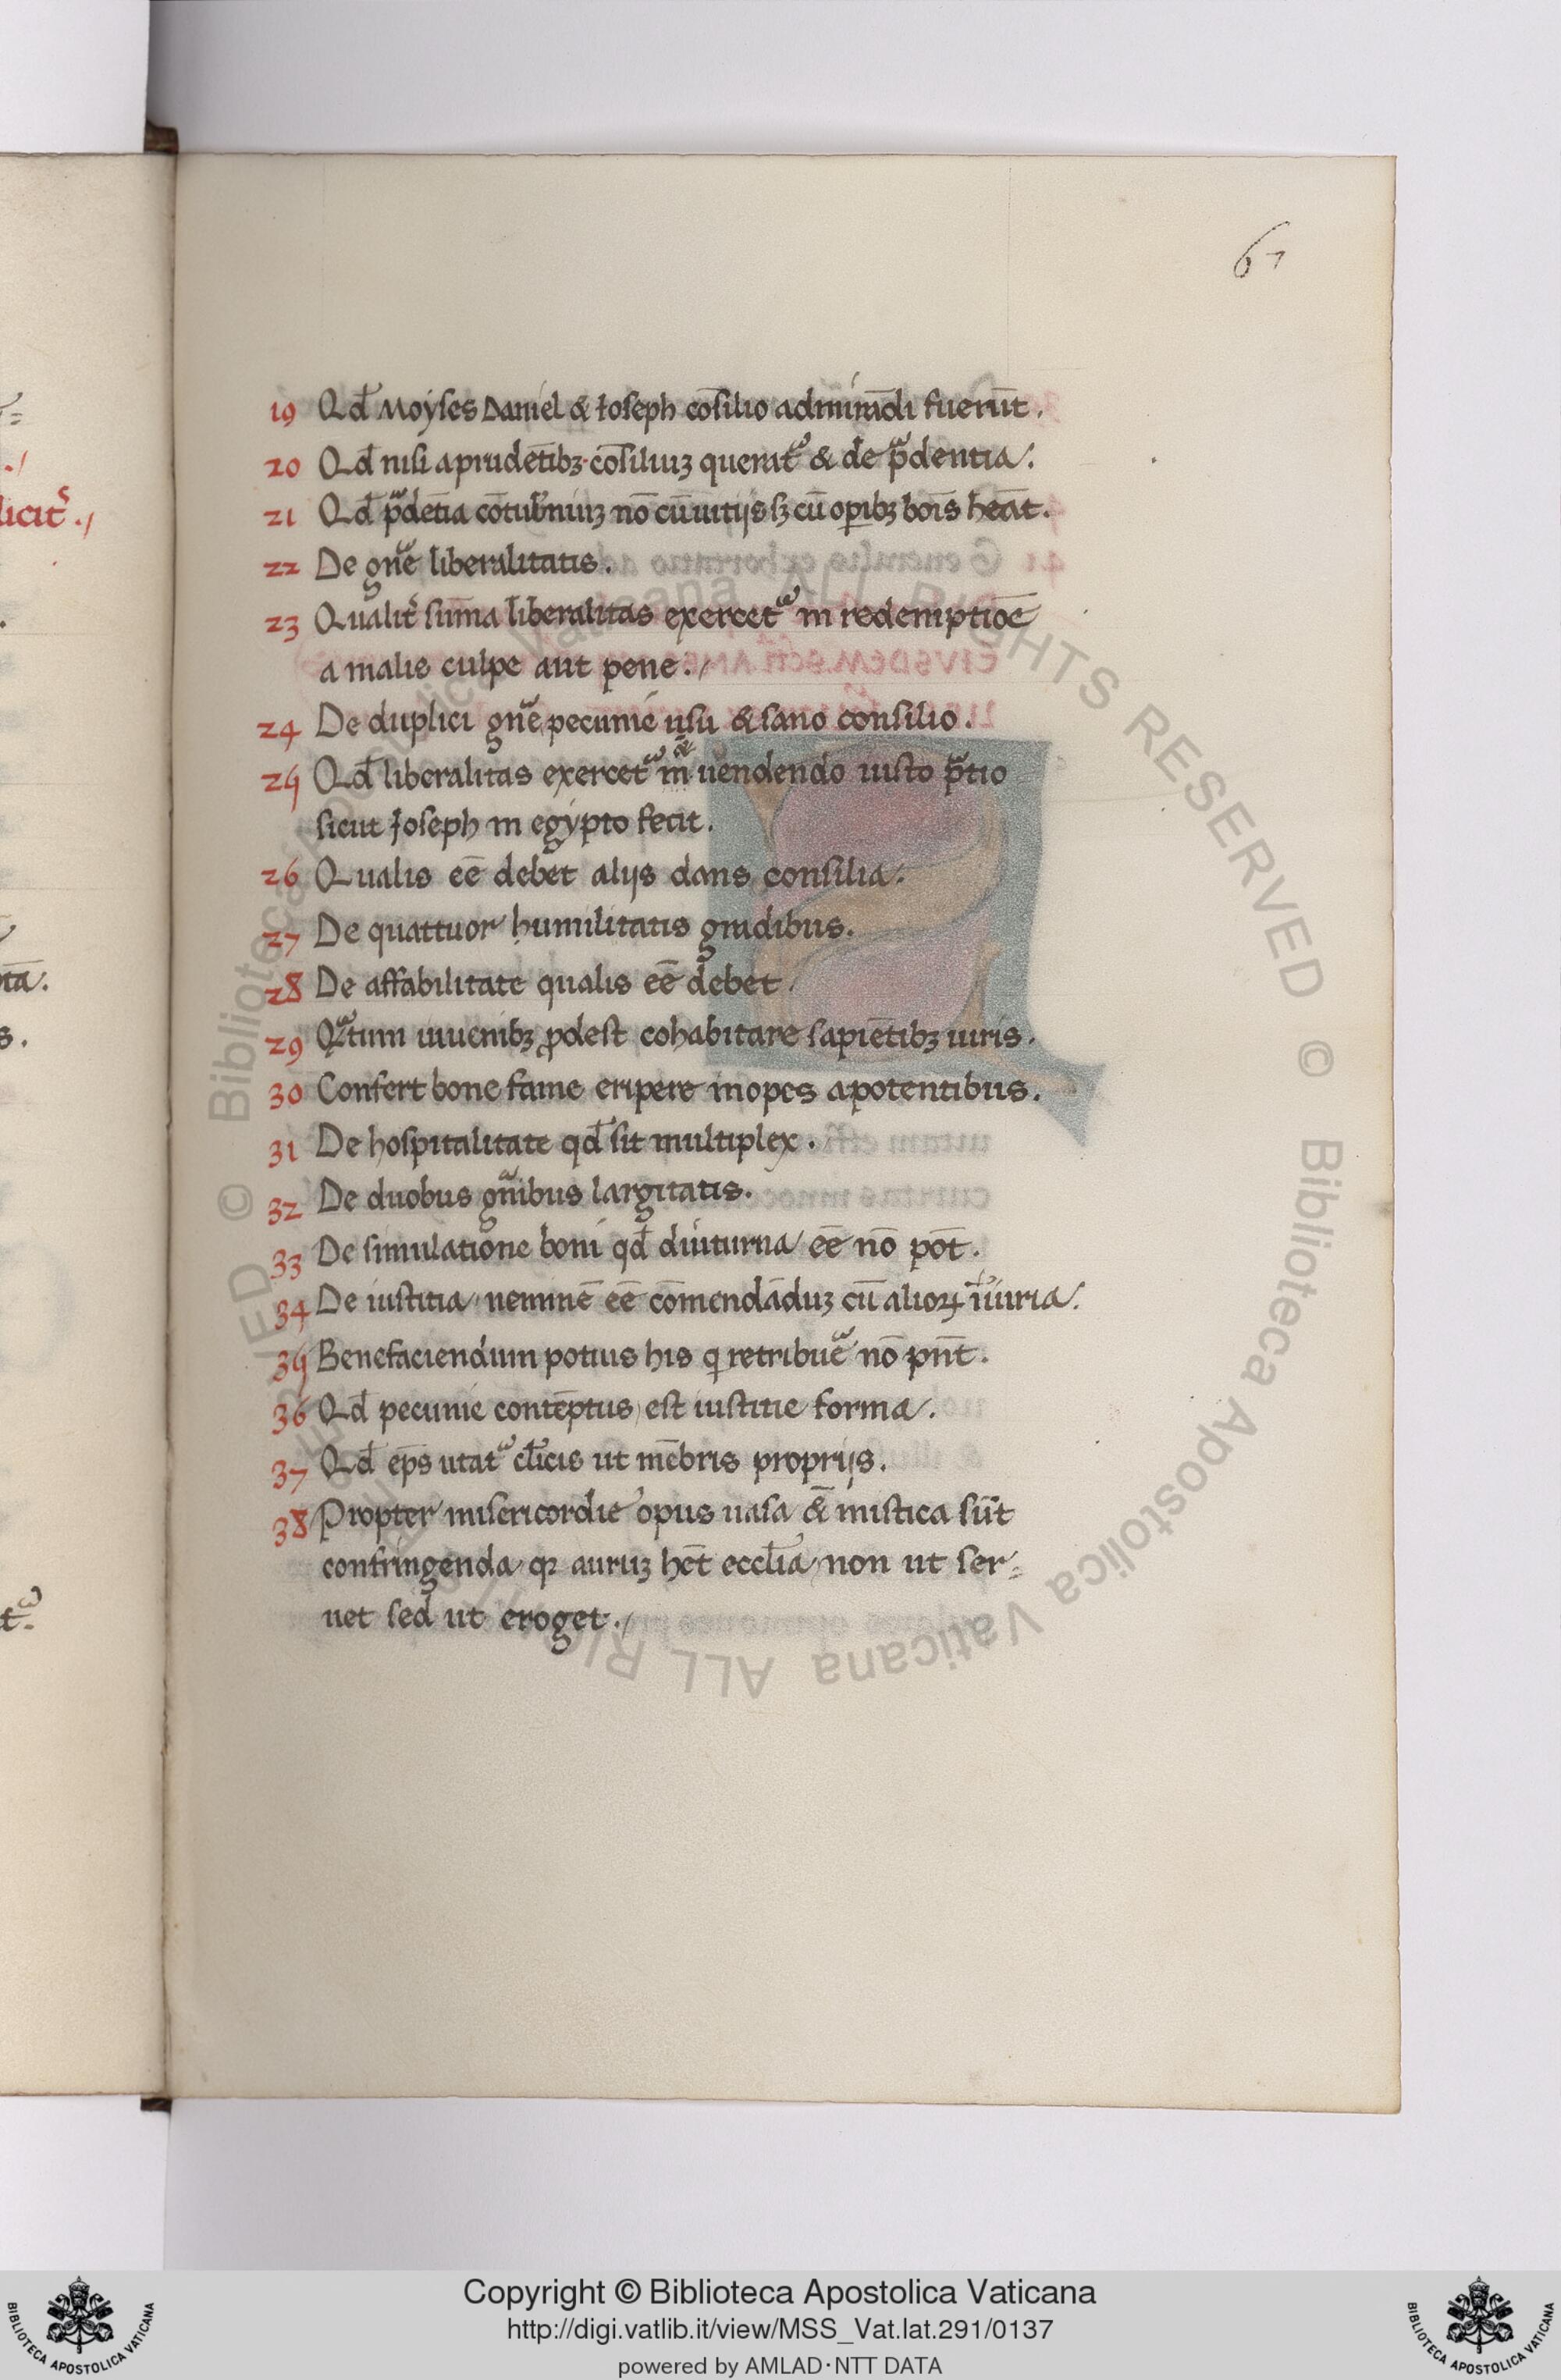 67
19 Qd̄ Moyses Daniel & Ioseph cōsilio admirādi fuerūt.
20 Qd̄ nisi a prudētibꝫ cōsiliuꝫ querat᷑ & de pͣdentia.
21 Qd̄ pͣdētia cōtub̄niuꝫ nō cū uitijs sꝫ cū opibꝫ bōis hēat.
22 De gn̄e liberalitatis.
23 Qualit᷑ sūma liberalitas exercet᷑ in redemptiōe
a malis culpe aut pene.
24 De duplici gn̄e pecunie usu & sano consilio.
25 Qd̄ liberalitas exercet᷑ in uendendo iusto pͣtio
sicut Joseph in egypto fecit.
26 Qualis eē debet alijs dans consilia.
27 De quattuor humilitatis gradibus.
28 De affabilitate qualis eē debet.
29 Qͣtum iuuenibꝫ ꝓdest cohabitare sapiētibꝫ uiris.
30 Confert bone fame eripere inopes a potentibus.
31 De hospitalitate qd̄ sit multiplex.
32 De duobus gn̄ibus largitatis.
33 De simulatione boni qd̄ diuturna eē nō pōt.
34 De iustitia neminē eē cōmendāduꝫ cū alioꝝ īiuria.
35 Benefaciendum potius his q retribuē nō pn̄t.
36 Qd̄ pecunie contēptus est iustitie forma.
37 Qd̄ ep̄s utat᷑ cl̄icis ut mēbris proprijs.
38 Propter misericordie opus uasa & mistica sūt
confringenda qꝛ auruꝫ hēt eccl̄ia non ut ser=
uet sed ut eroget.
licit᷑.
Copyright © Biblioteca Apostolica Vaticana
http://digi.vatlib.it/view/MSS_Vat.lat.291/0137
powered by AMLAD·NTT DATA
BIBLIOTECA APOSTOLICA VATICANA
BIBLIOTECA APOSTOLICA VATICANA
© Biblioteca Apostolica Vaticana ALL RIGHTS RESERVED © Biblioteca Apostolica Vaticana ALL RIGHTS RESERVED